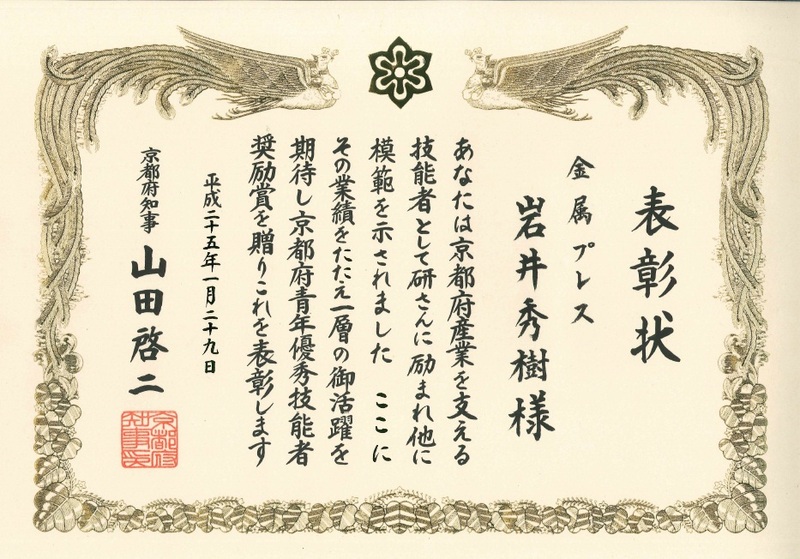 表彰状
金属プレス
岩井秀樹様
あなたは京都府産業を支える
技能者として研さんに励まれ他に
模範を示されました ここに
その業績をたたえ一層の御活躍を
期待し京都府青年優秀技能者
奨励賞を贈りこれを表彰します
平成二十五年一月二十九日
京都府知事 山田啓二
京都府知事印